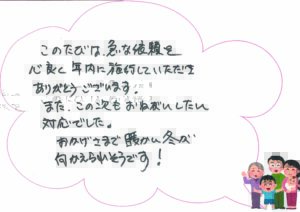 このたびは、急な依頼を
心良く年内に施行していただき
ありがとうございます。
また、この次もおねがいしたい
対応でした。
おかげさまで暖かい冬が
向かえられそうです！